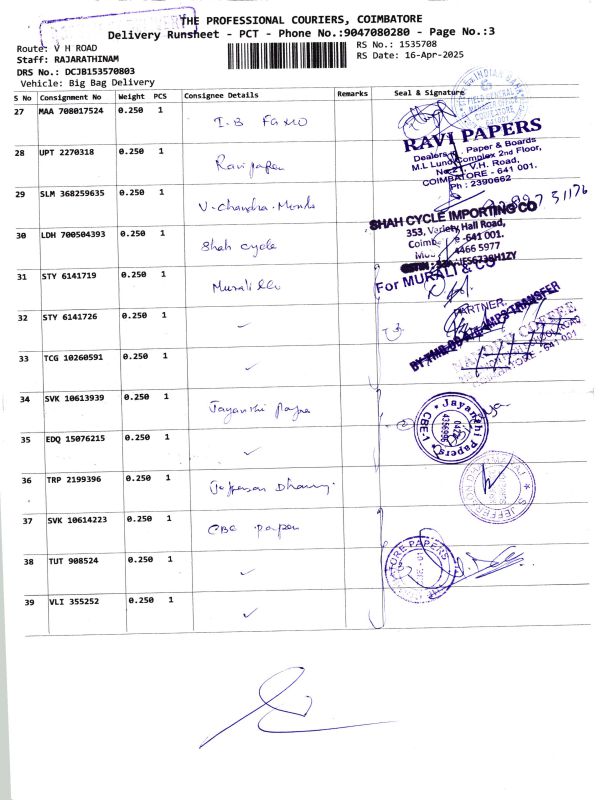 THE PROFESSIONAL COURIERS, COIMBATORE
Delivery Runsheet - PCT - Phone No.:9047080280 - Page No.:3
Route: V H ROAD
RS No.: 1535708
Staff: RAJARATHINAM
RS Date: 16-Apr-2025
DRS No.: DCJB153570803
Vehicle: Big Bag Delivery
S No Consignment No Weight PCS Consignee Details Remarks Seal & Signature
27 MAA 708017524 0.250 1 I-B
28 UPT 2270318 0.250 1 Ravi papers
29 SLM 368259635 0.250 1 V-Chandra
30 LDH 700504393 0.250 1 Shah cycle
31 STY 6141719 0.250 1 Murali &co
32 STY 6141726 0.250 1 ✓
33 TCG 10260591 0.250 1 ✓
34 SVK 10613939 0.250 1 Jayanthi
35 EDQ 15076215 0.250 1 ✓
36 TRP 2199396 0.250 1
37 SVK 10614223 0.250 1 CBE
38 TUT 908524 0.250 1 ✓
39 VLI 355252 0.250 1 ✓
INDIAN BANK
RAVI PAPERS
Dealers Paper & Boards
M.L Lund Complex 2nd Floor,
V.H. Road,
COIMBATORE - 641 001.
Ph : 2390662
SHAH CYCLE IMPORTING CO
353, Variety Hall Road,
-641 001.
4466 5977
For MURALI & CO
PARTNER.
COFFEE
COIMBATORE - 641 001
Jayanthi Papers
CBE-1
PAPERS